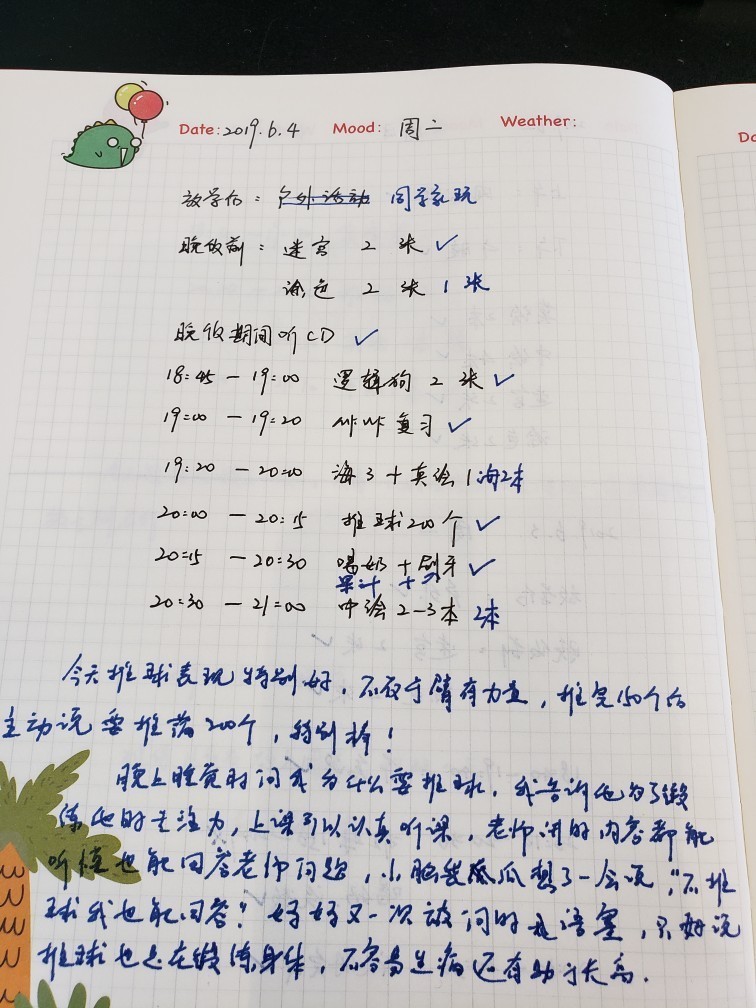 Date: 2019.6.4 Mood: 周二 Weather:
放学后：户外活动 同学家玩
晚饭前：迷宫 2 张 ✓
涂色 2 张 1 张
晚饭期间听CD ✓
18:45 - 19:00 逻辑狗 2 张 ✓
19:00 - 19:20 复习 ✓
19:20 - 20:00 海3 + 英绘1 海2本
20:00 - 20:15 推球200个 ✓
20:15 - 20:30 喝奶 + 刷牙 ✓
果汁 +
20:30 - 21:00 中绘2-3本 2本
今天推球表现特别好，不仅手臂有力量，推完150个后
主动说要推满200个，特别棒！
晚上睡觉时问我为什么要推球，我告诉他为了锻
炼他的专注力，上课可以认真听课，老师讲的内容都能
听懂也能回答老师问题，小脑袋瓜想了一会说："不推
球我也能回答"好好又一次被问的是语塞，只好说
推球也是在锻炼身体，不容易生病还有助于长高.